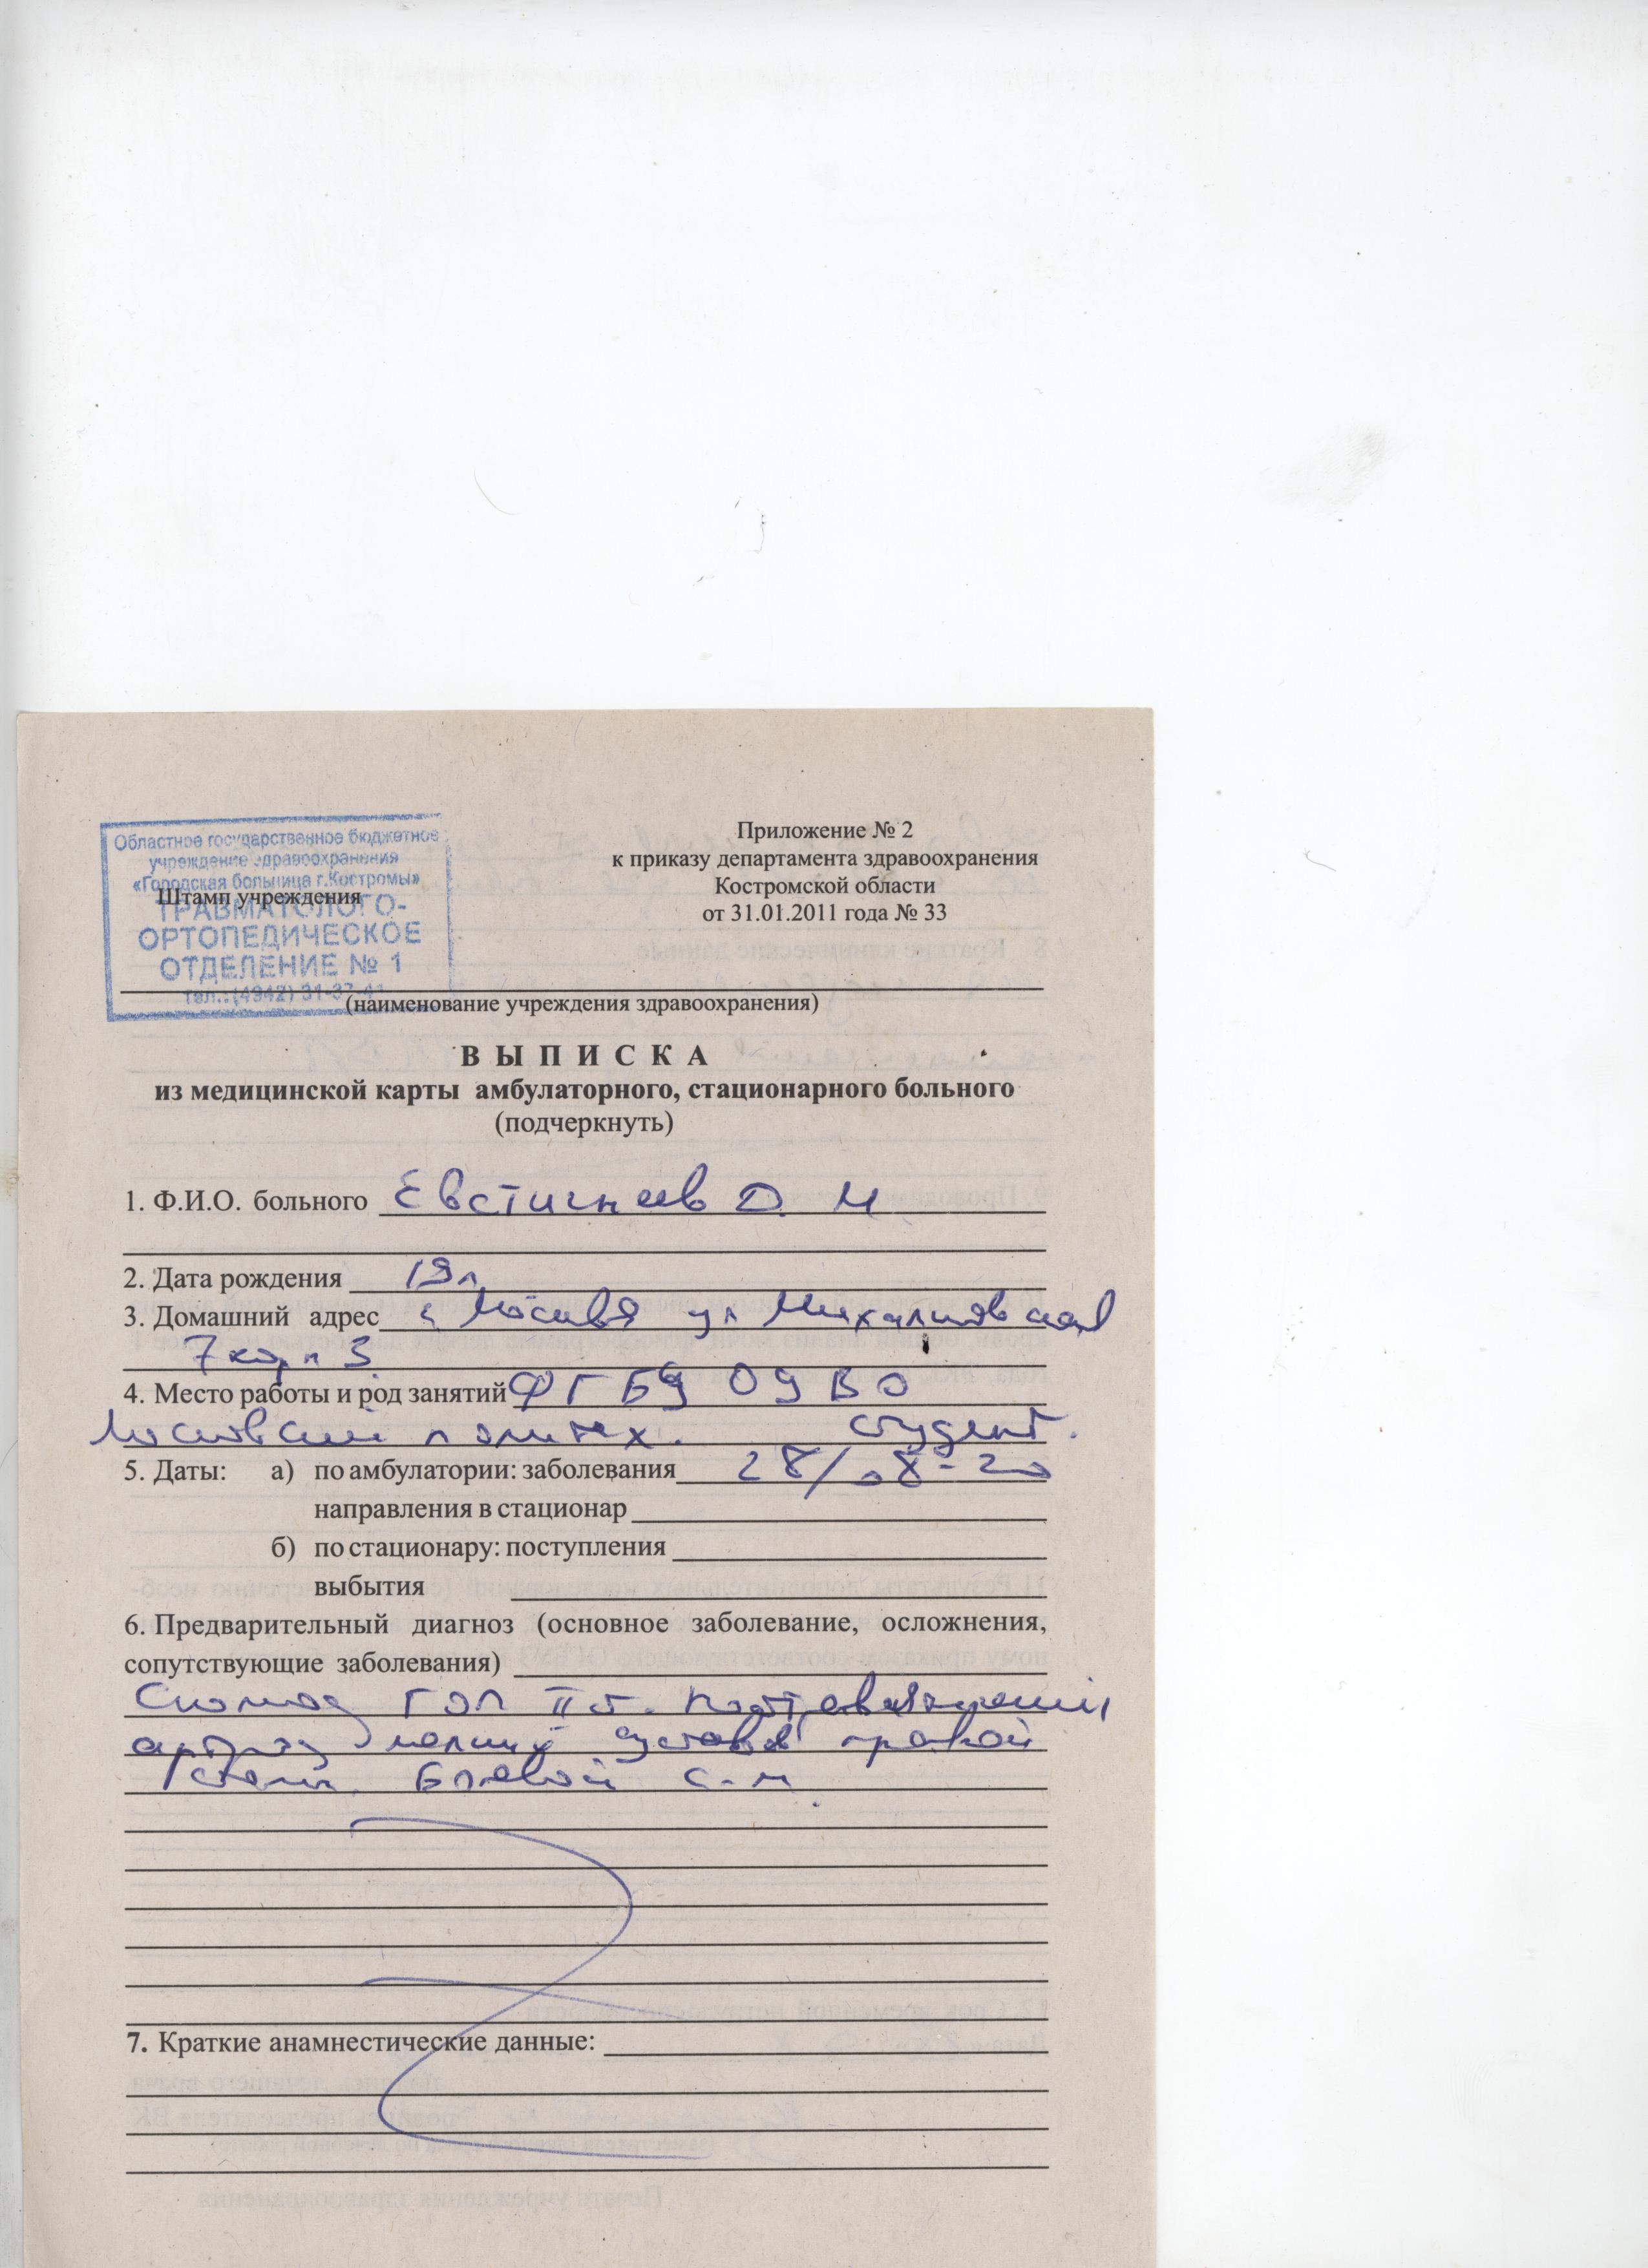 Областное государственное бюджетное
учреждение здравоохранения
«Городская больница г.Костромы»
Штамп учреждения
ТРАВМАТОЛОГО-
ОРТОПЕДИЧЕСКОЕ
ОТДЕЛЕНИЕ № 1
тел.: (4942) 31-37-41
Приложение № 2
к приказу департамента здравоохранения
Костромской области
от 31.01.2011 года № 33
(наименование учреждения здравоохранения)
ВЫПИСКА
из медицинской карты амбулаторного, стационарного больного
(подчеркнуть)
1. Ф.И.О. больного Евстигнеев Д. М
2. Дата рождения 19л
3. Домашний адрес г Москва ул Михалковская
7 корп 3
4. Место работы и род занятий ФГБУ ОУ ВО
Московский политех. студент.
5. Даты: а) по амбулатории: заболевания 28/08-20
направления в стационар
б) по стационару: поступления
выбытия
6. Предварительный диагноз (основное заболевание, осложнения,
сопутствующие заболевания)
II ст. Посттравматический
артроз мелких суставов правой
стопы. Болевой с-м
7. Краткие анамнестические данные: